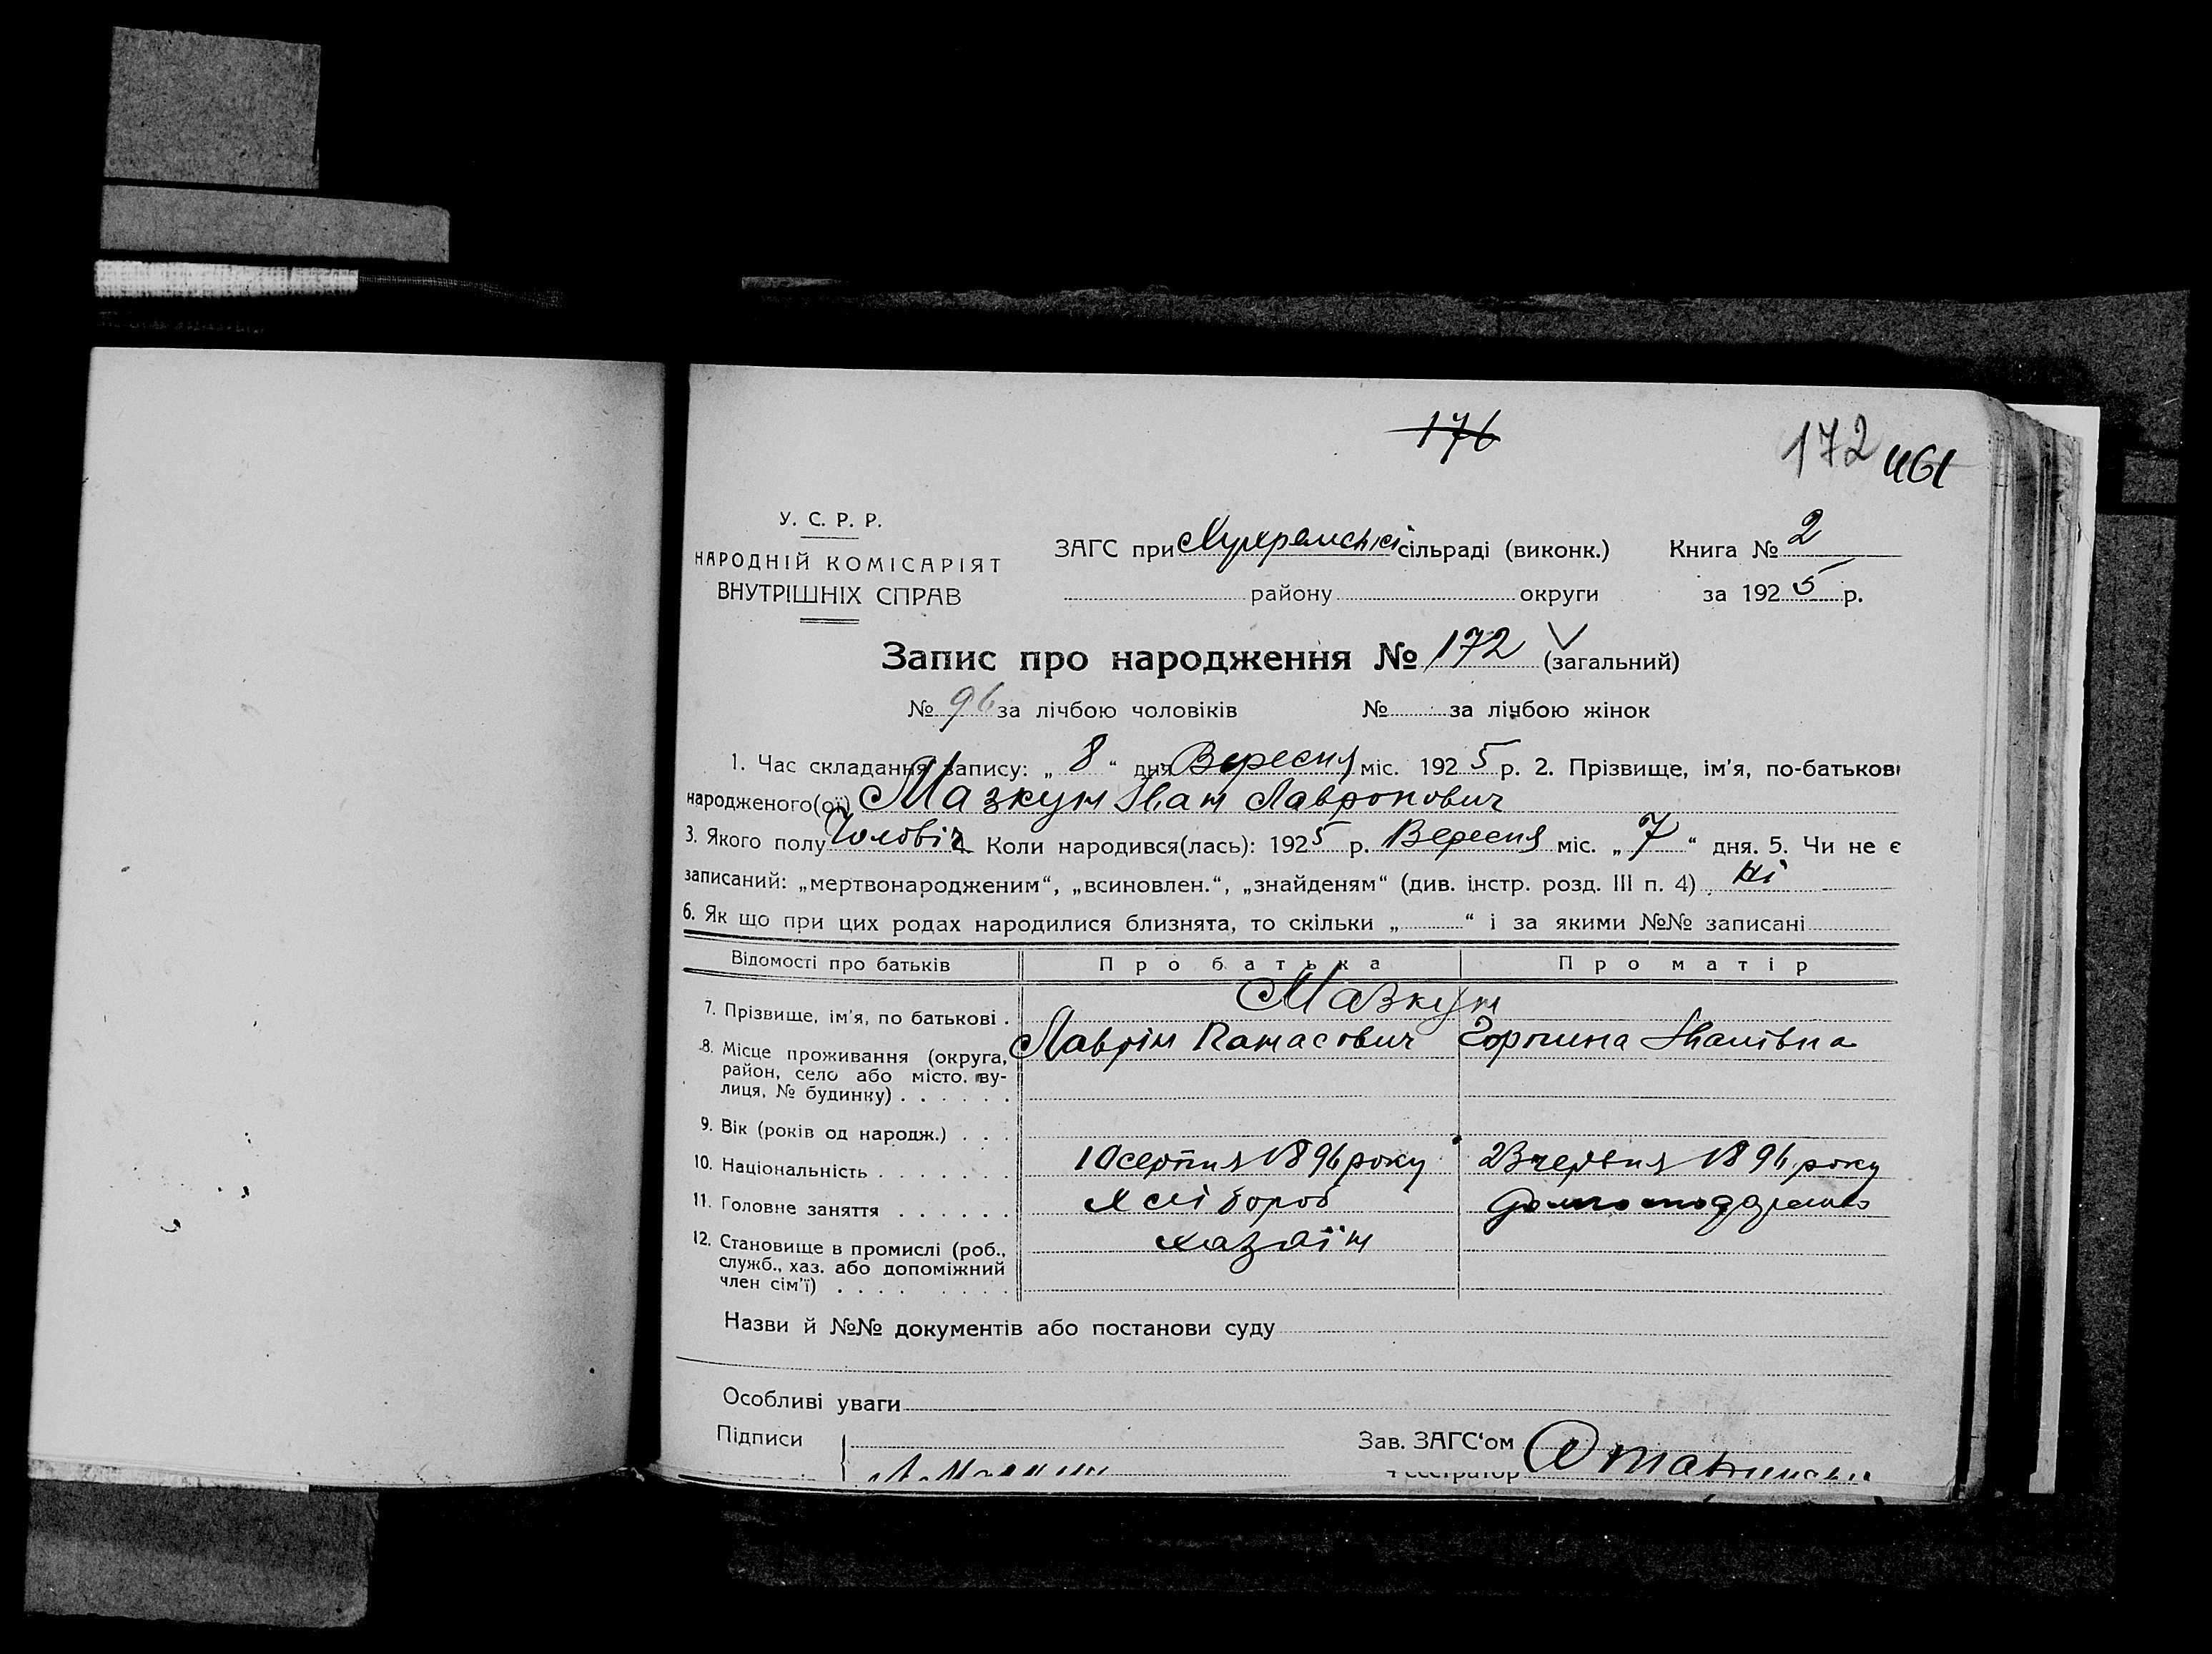 176
172 461
У. С. Р. Р.
НАРОДНІЙ КОМІСАРІЯТ
ВНУТРІШНІХ СПРАВ
ЗАГС при сільраді (виконк.) Книга № 2
району округи за 1925 р.
Запис про народження № 172 (загальний)
№ 96 за лічбою чоловіків № за лічбою жінок
1. Час складання запису: „ 8 “ дня Вересня міс. 1925 р. 2. Прізвище, ім'я, по-батькові
народженого(ої) Мазкун Іван Лавронович
3. Якого полу Чоловіч 4. Коли народився(лась): 1925 р. Вересня міс. „ 7 “ дня. 5. Чи не є
записаний: „мертвонародженим“, „всиновлен.“, „знайденям“ (див. інстр. розд. III п. 4) Ні
6. Як що при цих родах народилися близнята, то скільки „ “ і за якими №№ записані
Відомості про батьків Про батька Про матір
7. Прізвище, ім'я, по батькові . Мазкун
Лаврін Панасович Горпина Іванівна
8. Місце проживання (округа,
район, село або місто. ву-
лиця, № будинку) . . . . . .
9. Вік (років од народж.) . . .
10. Національність . . . . . . . 10 серпня 1896 року 23 червня 1896 року
11. Головне заняття . . . . . . Хлібороб
12. Становище в промислі (роб.,
служб., хаз. або допоміжний
член сім'ї) . . . . . . . . хазяїн
Назви й №№ документів або постанови суду
Особливі уваги
Підписи Зав. ЗАГС‘ом